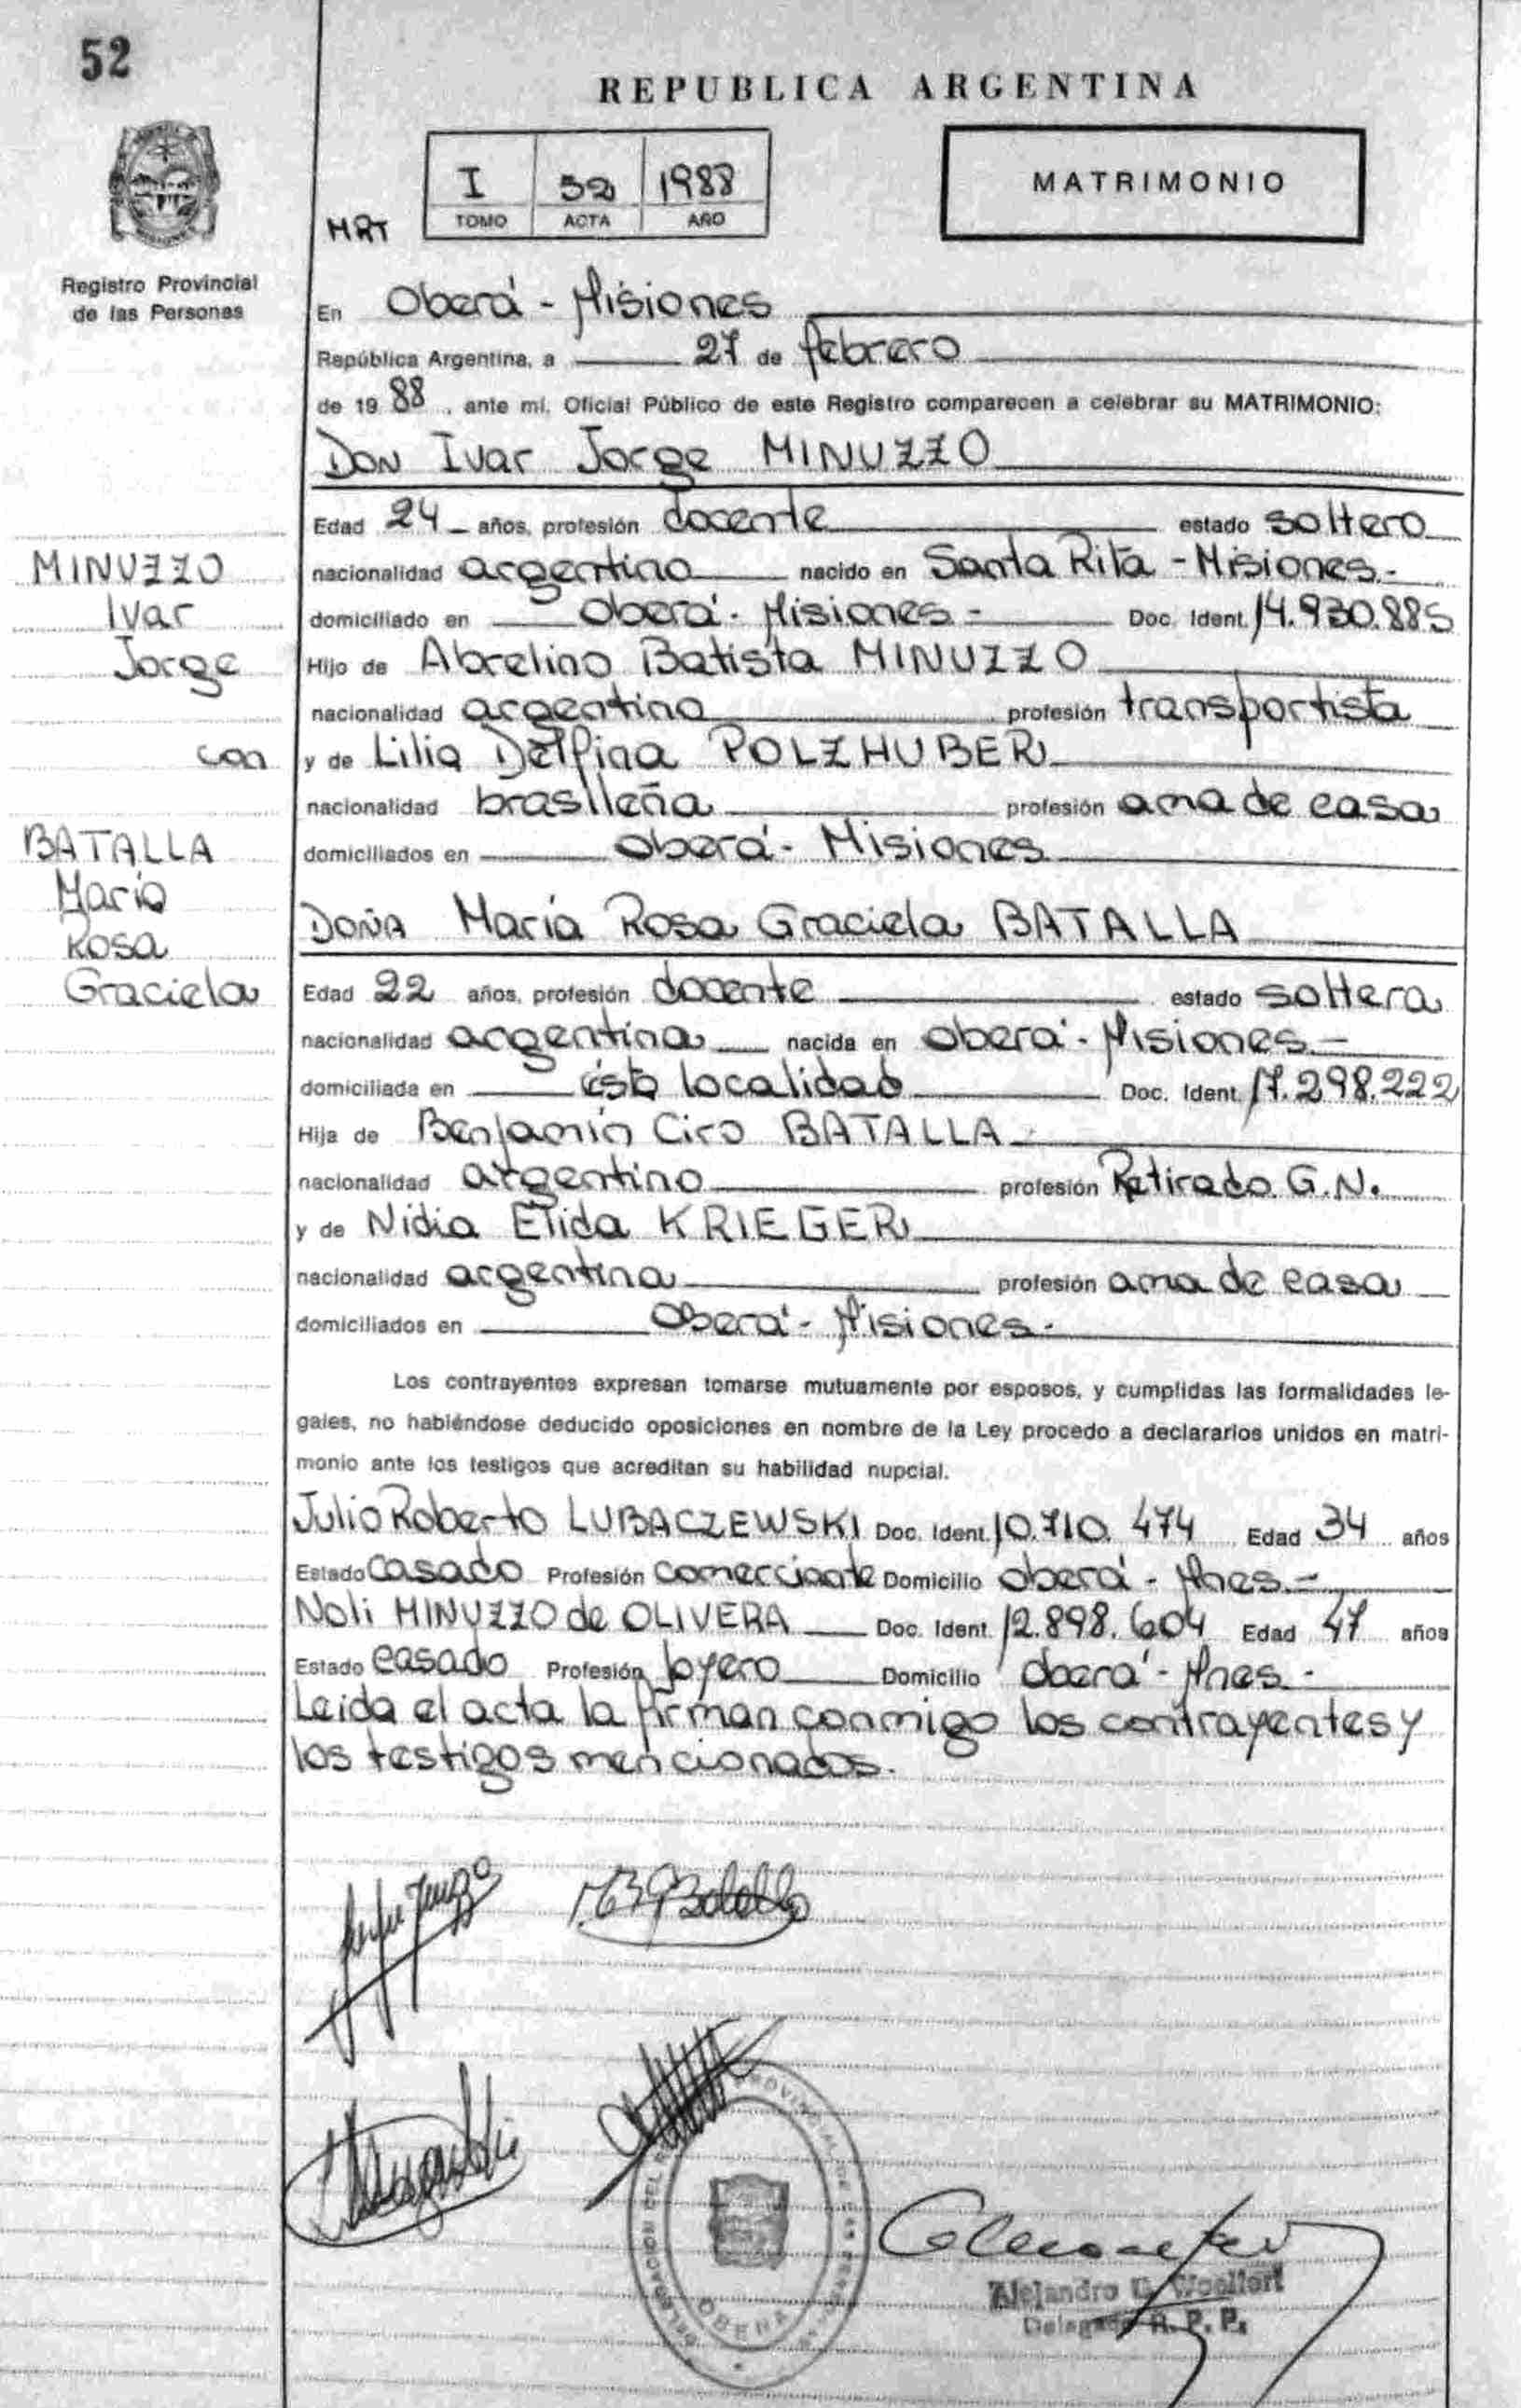 52
REPUBLICA ARGENTINA
I 52 1988
TOMO ACTA AÑO
MATRIMONIO
MRT
Registro Provincial
de las Personas
En Oberá - Misiones
República Argentina, a 27 de febrero
de 19 88, ante mí, Oficial Público de este Registro comparecen a celebrar su MATRIMONIO:
DON Ivar Jorge MINUZZO
Edad 24 años, profesión docente estado soltero
nacionalidad argentino nacido en Santa Rita - Misiones.-
domiciliado en Oberá - Misiones - Doc. Ident. 14.930.885
Hijo de Abrelino Batista MINUZZO
nacionalidad argentino profesión transportista
y de Lilia Delfina POLZHUBER
nacionalidad brasileña profesión ama de casa
domiciliados en Oberá - Misiones
MINUZZO
Ivar
Jorge
con
BATALLA
María
Rosa
Graciela
DOÑA María Rosa Graciela BATALLA
Edad 22 años, profesión docente estado soltera
nacionalidad argentina nacida en Oberá - Misiones.-
domiciliada en ésta localidad Doc. Ident. 17.298.222
Hija de Benjamín Ciro BATALLA
nacionalidad argentino profesión Retirado G.N.
y de Nidia Elida KRIEGER
nacionalidad argentina profesión ama de casa
domiciliados en Oberá - Misiones.
Los contrayentes expresan tomarse mutuamente por esposos, y cumplidas las formalidades le-
gales, no habiéndose deducido oposiciones en nombre de la Ley procedo a declararlos unidos en matri-
monio ante los testigos que acreditan su habilidad nupcial.
Julio Roberto LUBACZEWSKI Doc. Ident. 10.710.474 Edad 34 años
Estado casado Profesión comerciante Domicilio Oberá - Mnes.-
Noli MINUZZO de OLIVERA Doc. Ident. 12.898.604 Edad 47 años
Estado casado Profesión joyero Domicilio Oberá - Mnes -
Leida el acta la firman conmigo los contrayentes y
los testigos mencionados.
Alejandro G.
Delegado R. P. P.